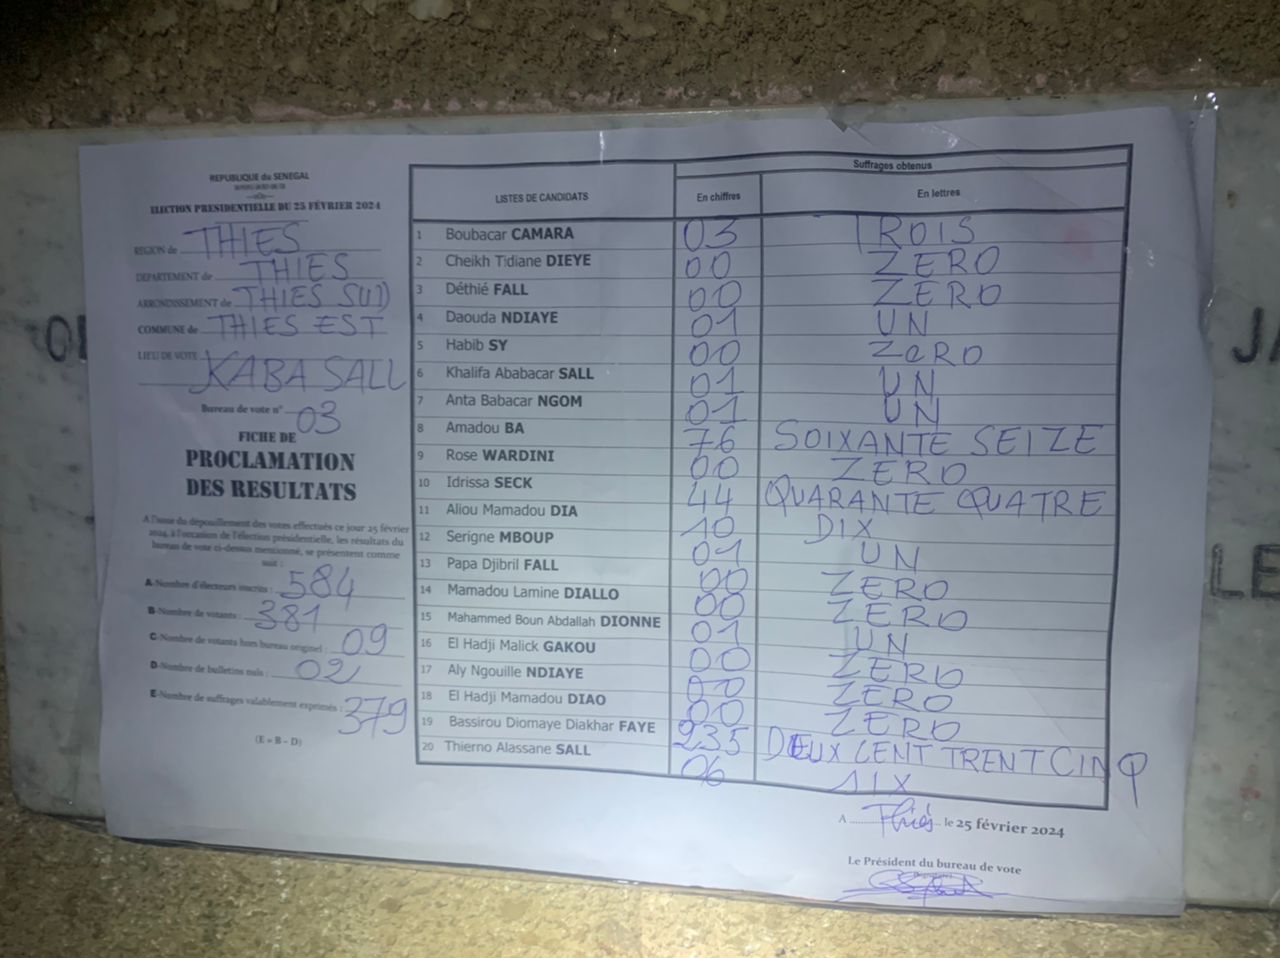 REPUBLIQUE du SENEGAL
ELECTION PRESIDENTIELLE DU 25 FÉVRIER 2024
REGION de THIES
DEPARTEMENT de THIES
ARRONDISSEMENT de THIES SUD
COMMUNE de THIES EST
LIEU DE VOTE KABA SALL
Bureau de vote n° 03
FICHE DE
PROCLAMATION
DES RESULTATS
A l'issue du dépouillement des votes effectués ce jour 25 février
2024, à l'occasion de l'élection présidentielle, les résultats du
bureau de vote ci-dessus mentionné, se présentent comme
suit :
A-Nombre d'électeurs inscrits : 584
B-Nombre de votants : 381
C-Nombre de votants hors bureau originel : 09
D-Nombre de bulletins nuls : 02
E-Nombre de suffrages valablement exprimés : 379
(E = B - D)
LISTES DE CANDIDATS
Suffrages obtenus
En chiffres En lettres
1 Boubacar CAMARA 03 TROIS
2 Cheikh Tidiane DIEYE 00 ZERO
3 Déthié FALL 00 ZERO
4 Daouda NDIAYE 01 UN
5 Habib SY 00 ZeRO
6 Khalifa Ababacar SALL 01 UN
7 Anta Babacar NGOM 01 UN
8 Amadou BA 76 SOIXANTE SEIZE
9 Rose WARDINI 00 ZERO
10 Idrissa SECK 44 QUARANTE QUATRE
11 Aliou Mamadou DIA 10 DIX
12 Serigne MBOUP 01 UN
13 Papa Djibril FALL 00 ZERO
14 Mamadou Lamine DIALLO 00 ZERO
15 Mahammed Boun Abdallah DIONNE 01 UN
16 El Hadji Malick GAKOU 00 ZERO
17 Aly Ngouille NDIAYE 00 ZERO
18 El Hadji Mamadou DIAO 00 ZERO
19 Bassirou Diomaye Diakhar FAYE 235 DEUX CENT TRENT CINQ
20 Thierno Alassane SALL 06 SIX
A Thiès le 25 février 2024
Le Président du bureau de vote